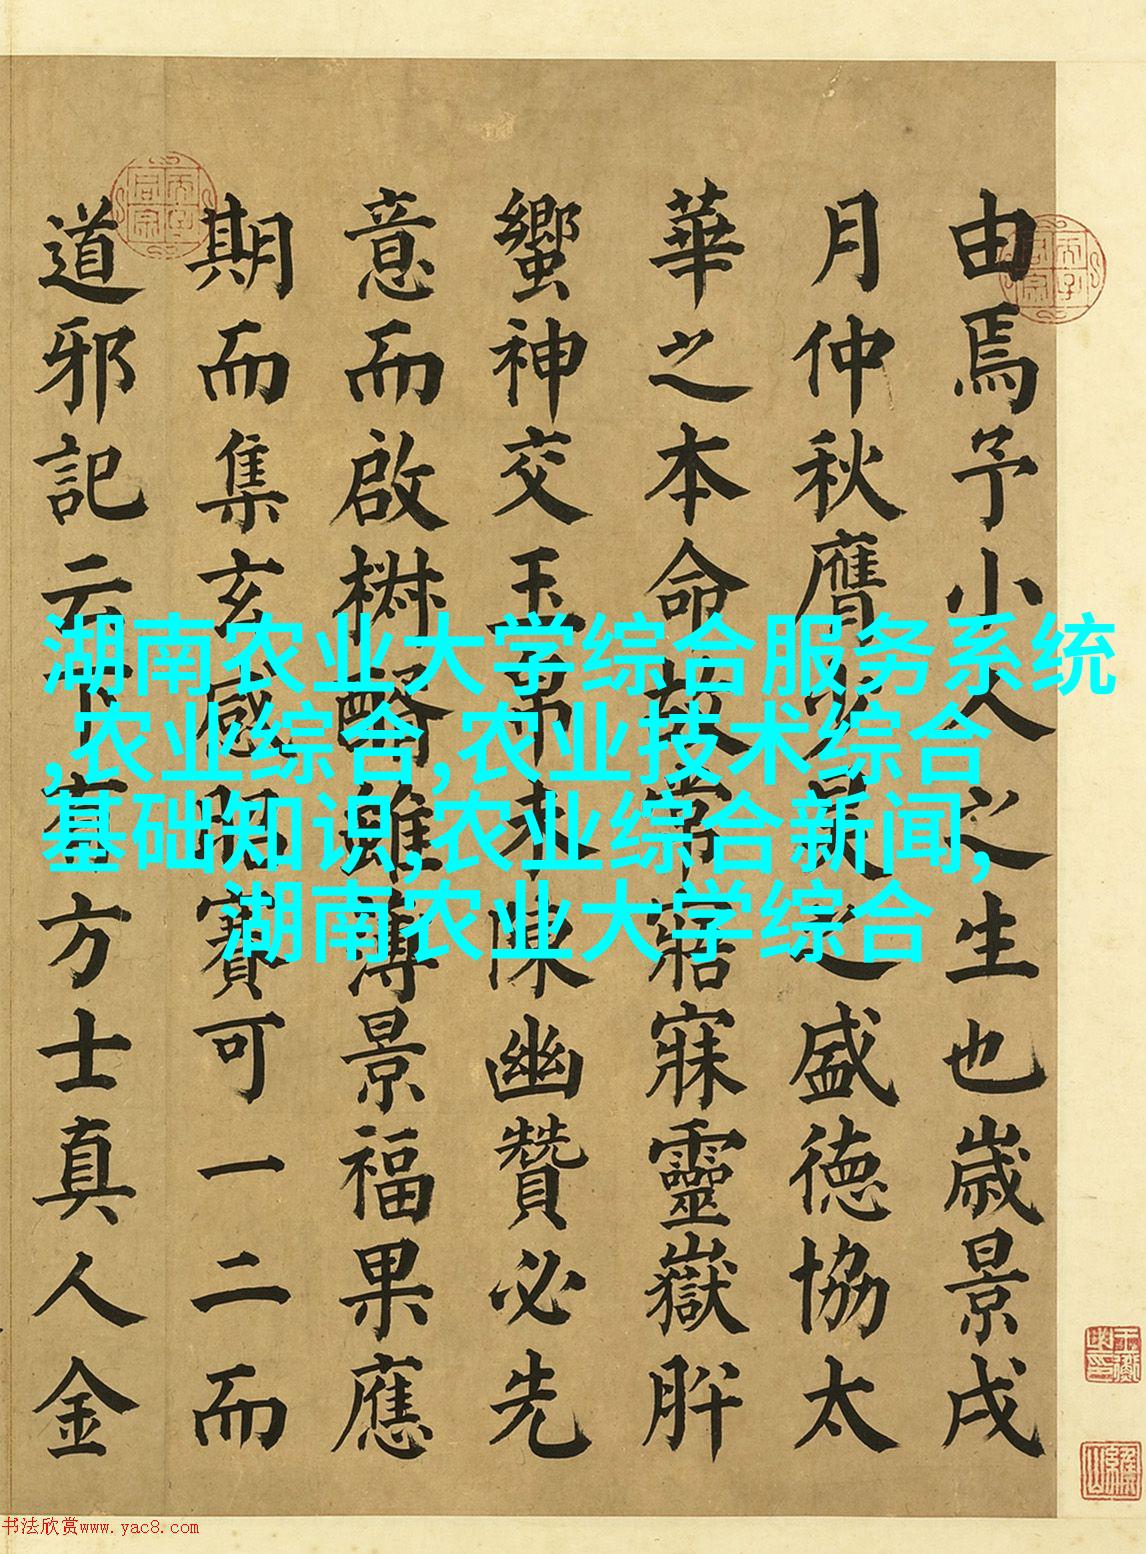 由焉予小人之生也歲景戌
月仲秋膺少昊之盛德協太
華之本命故常寤寐靈嶽肸
蠁神交玉帛未陳幽贊必先
意而啟椒醑雖薄景福果應
期而集玄感昭賽可一二而
道邪記云方士真人金
湖南农业大学综合服务系统
,农业综合,农业技术综合
基础知识,农业综合新闻,
湖南农业大学综合
书法欣赏www.yac8.com